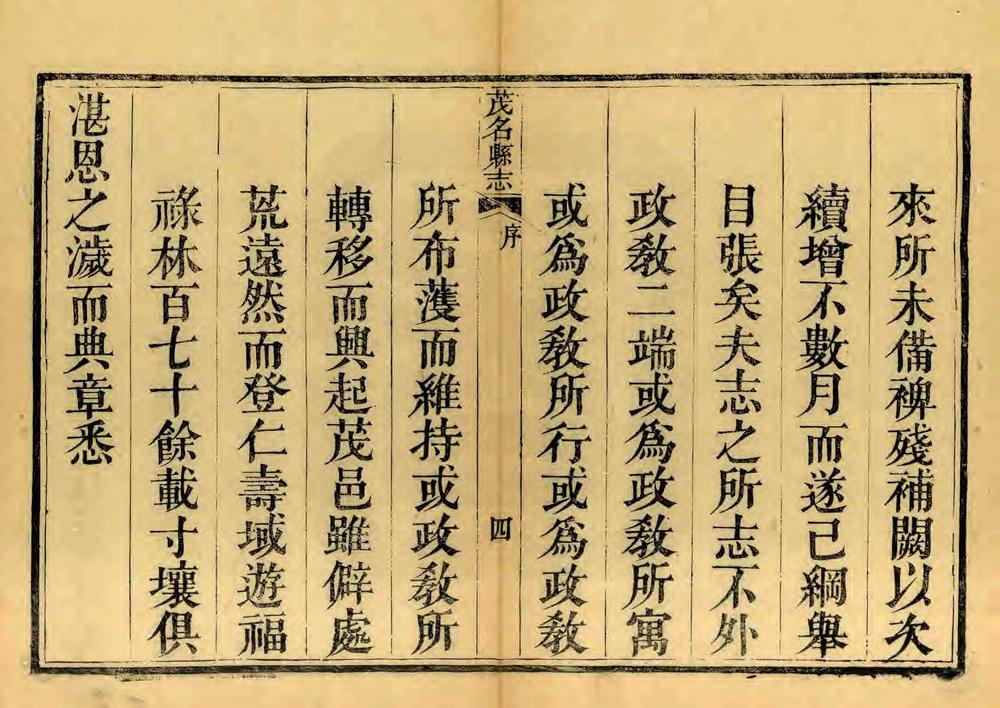 來所未備裨殘補闕以次
續增不數月而遂已綱舉
目張矣夫志之所志不外
政教二端或爲政教所寓
或爲政教所行或爲政教
茂名縣志
序
四
所布濩而維持或政教所
轉移而興起茂邑雖僻處
荒遠然而登仁壽域遊福
祿林百七十餘載寸壤俱
湛恩之濊而典章悉